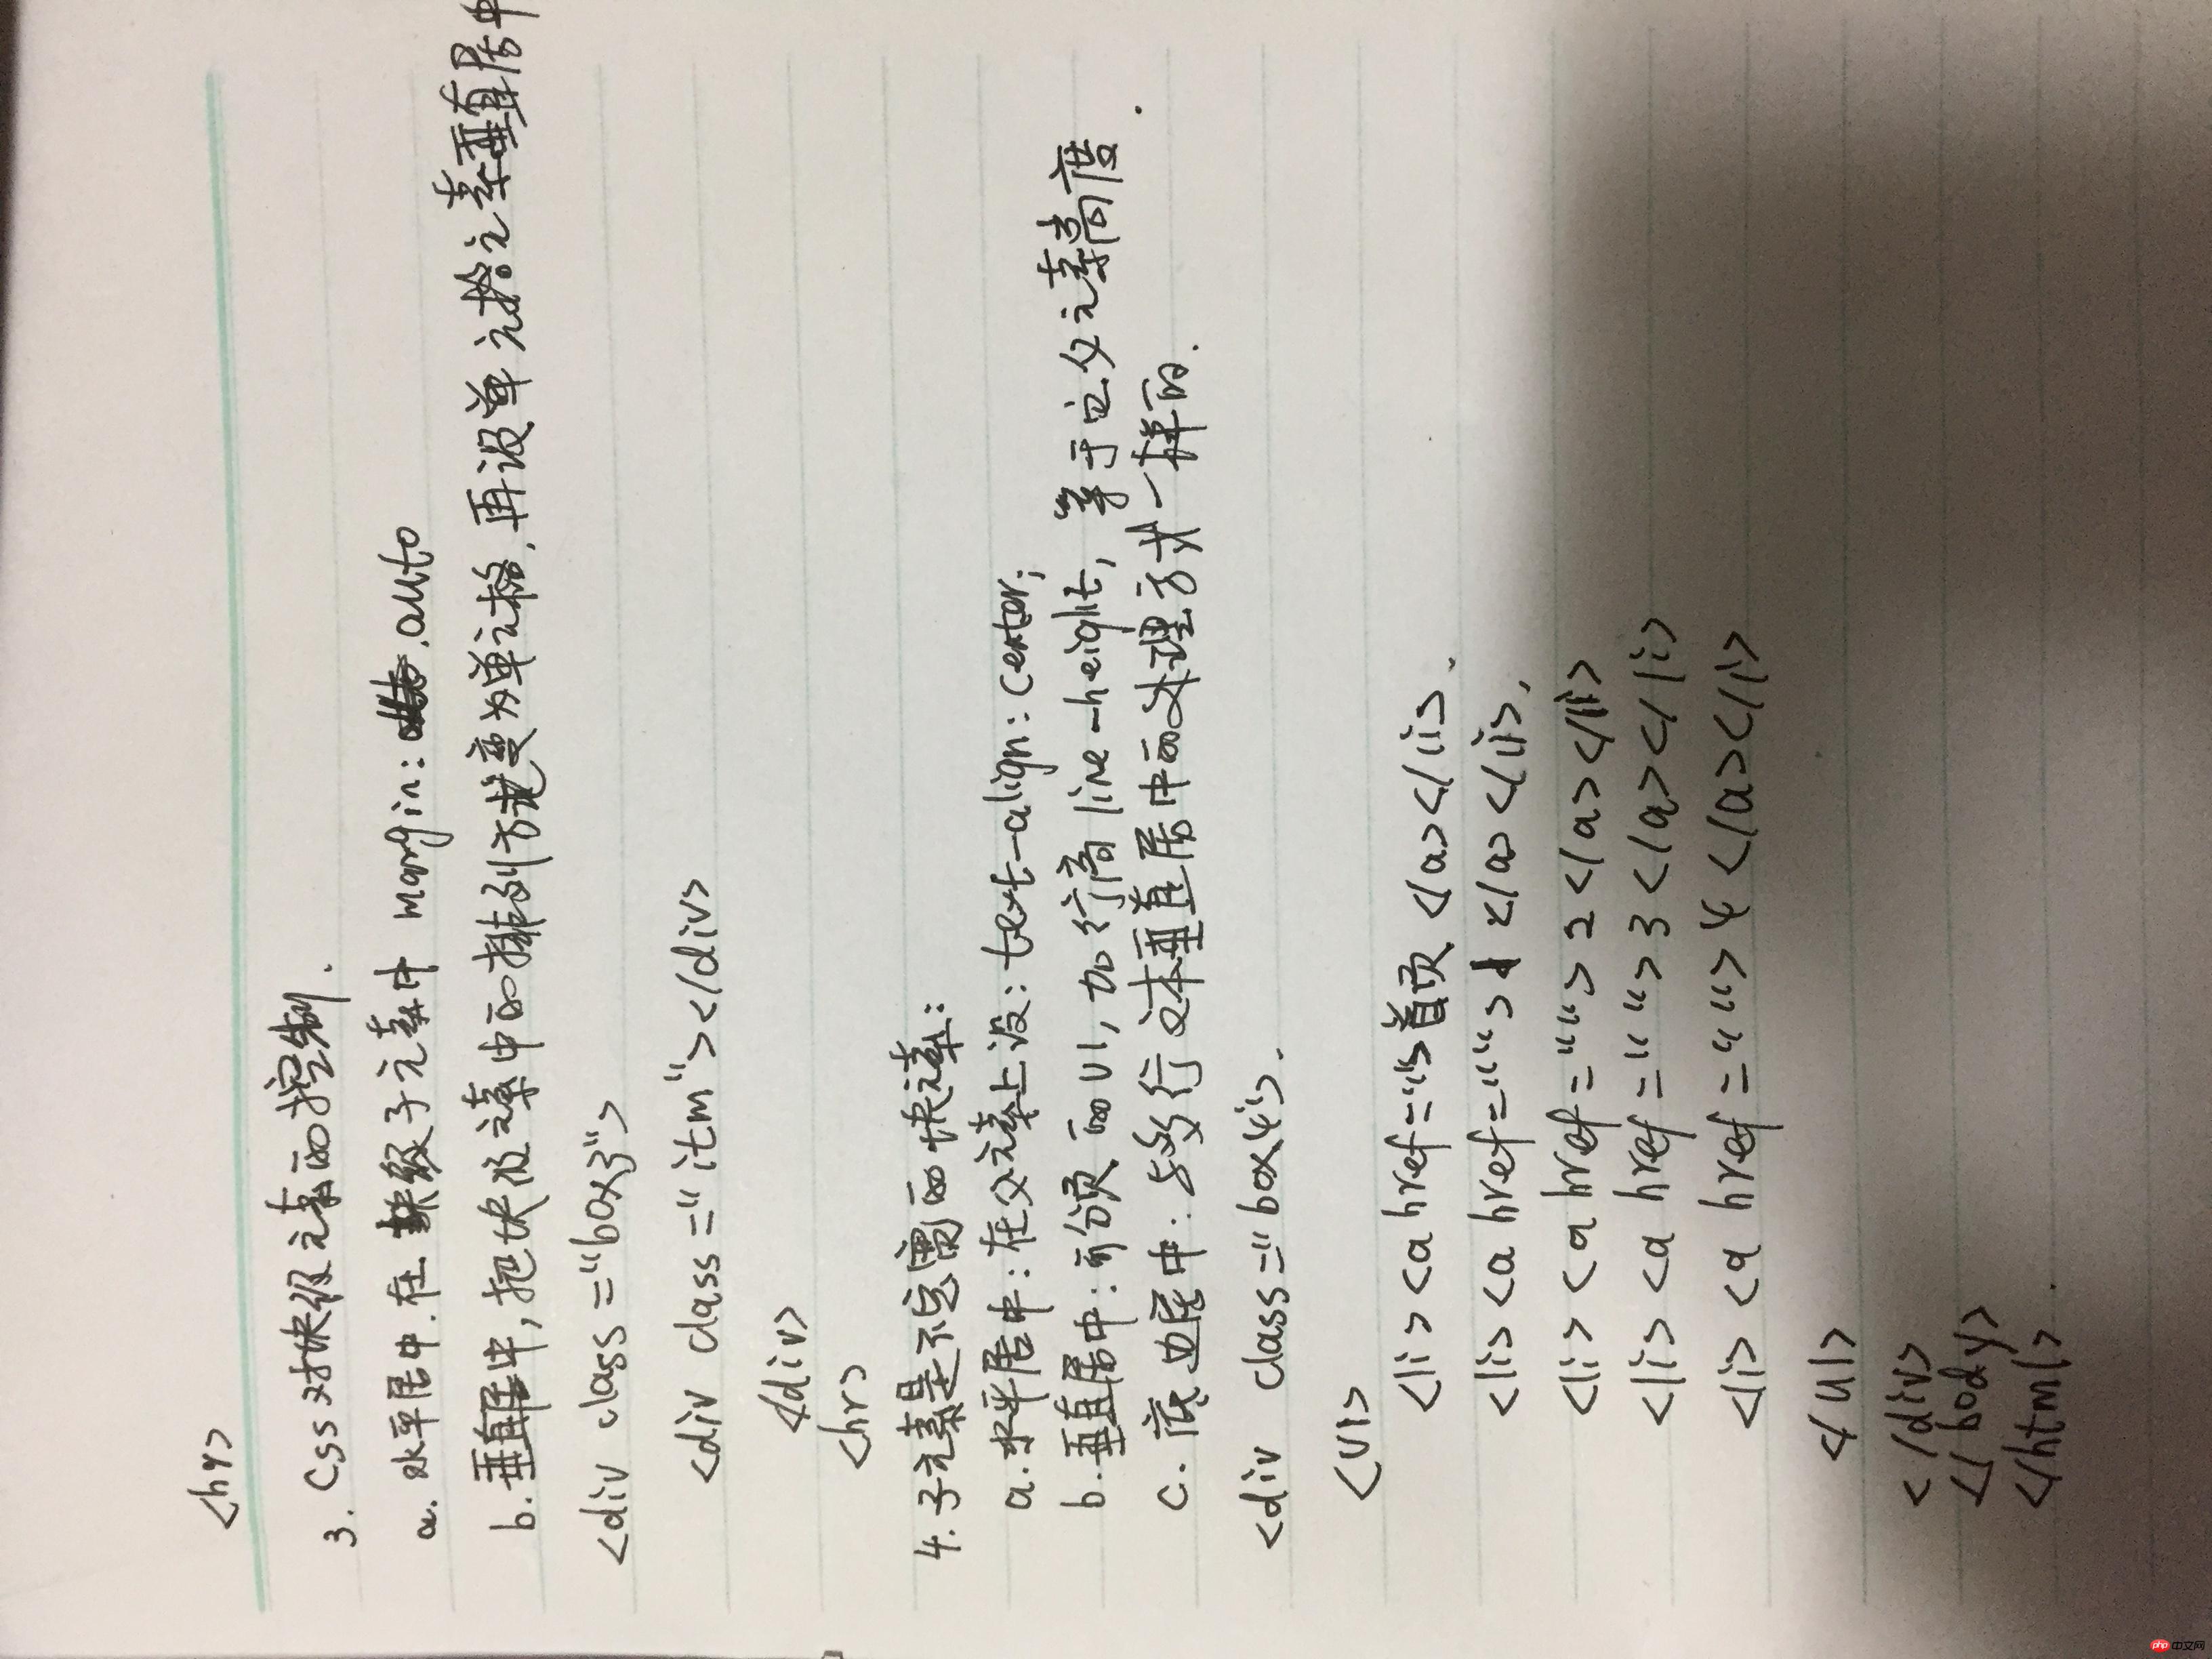 <hr>
3. Css对块级元素的控制.
a. 水平居中.在块级子元素中 margin: auto
b. 垂直居中,把块级元素中的排列方式变为单元格.再设单元格元素垂直居中
<div class="box3">
<div class="itm"></div>
</div>
<hr>
4.子元素是不定宽的块元素:
a.水平居中:在父元素上设:text-align:center;
b.垂直居中:可分页的ul,加行高line-height,等于它父元素高度.
c.底边居中:与多行文本垂直居中的处理方式一样的.
<div class="box4">.
<ul>
<li><a href="">首页</a></li>.
<li><a href="">1</a></li>.
<li><a href="">2</a></li>
<li><a href="">3</a></li>
<li><a href="">4</a></li>
</ul>
</div>
</body>
</html>.
php中文网